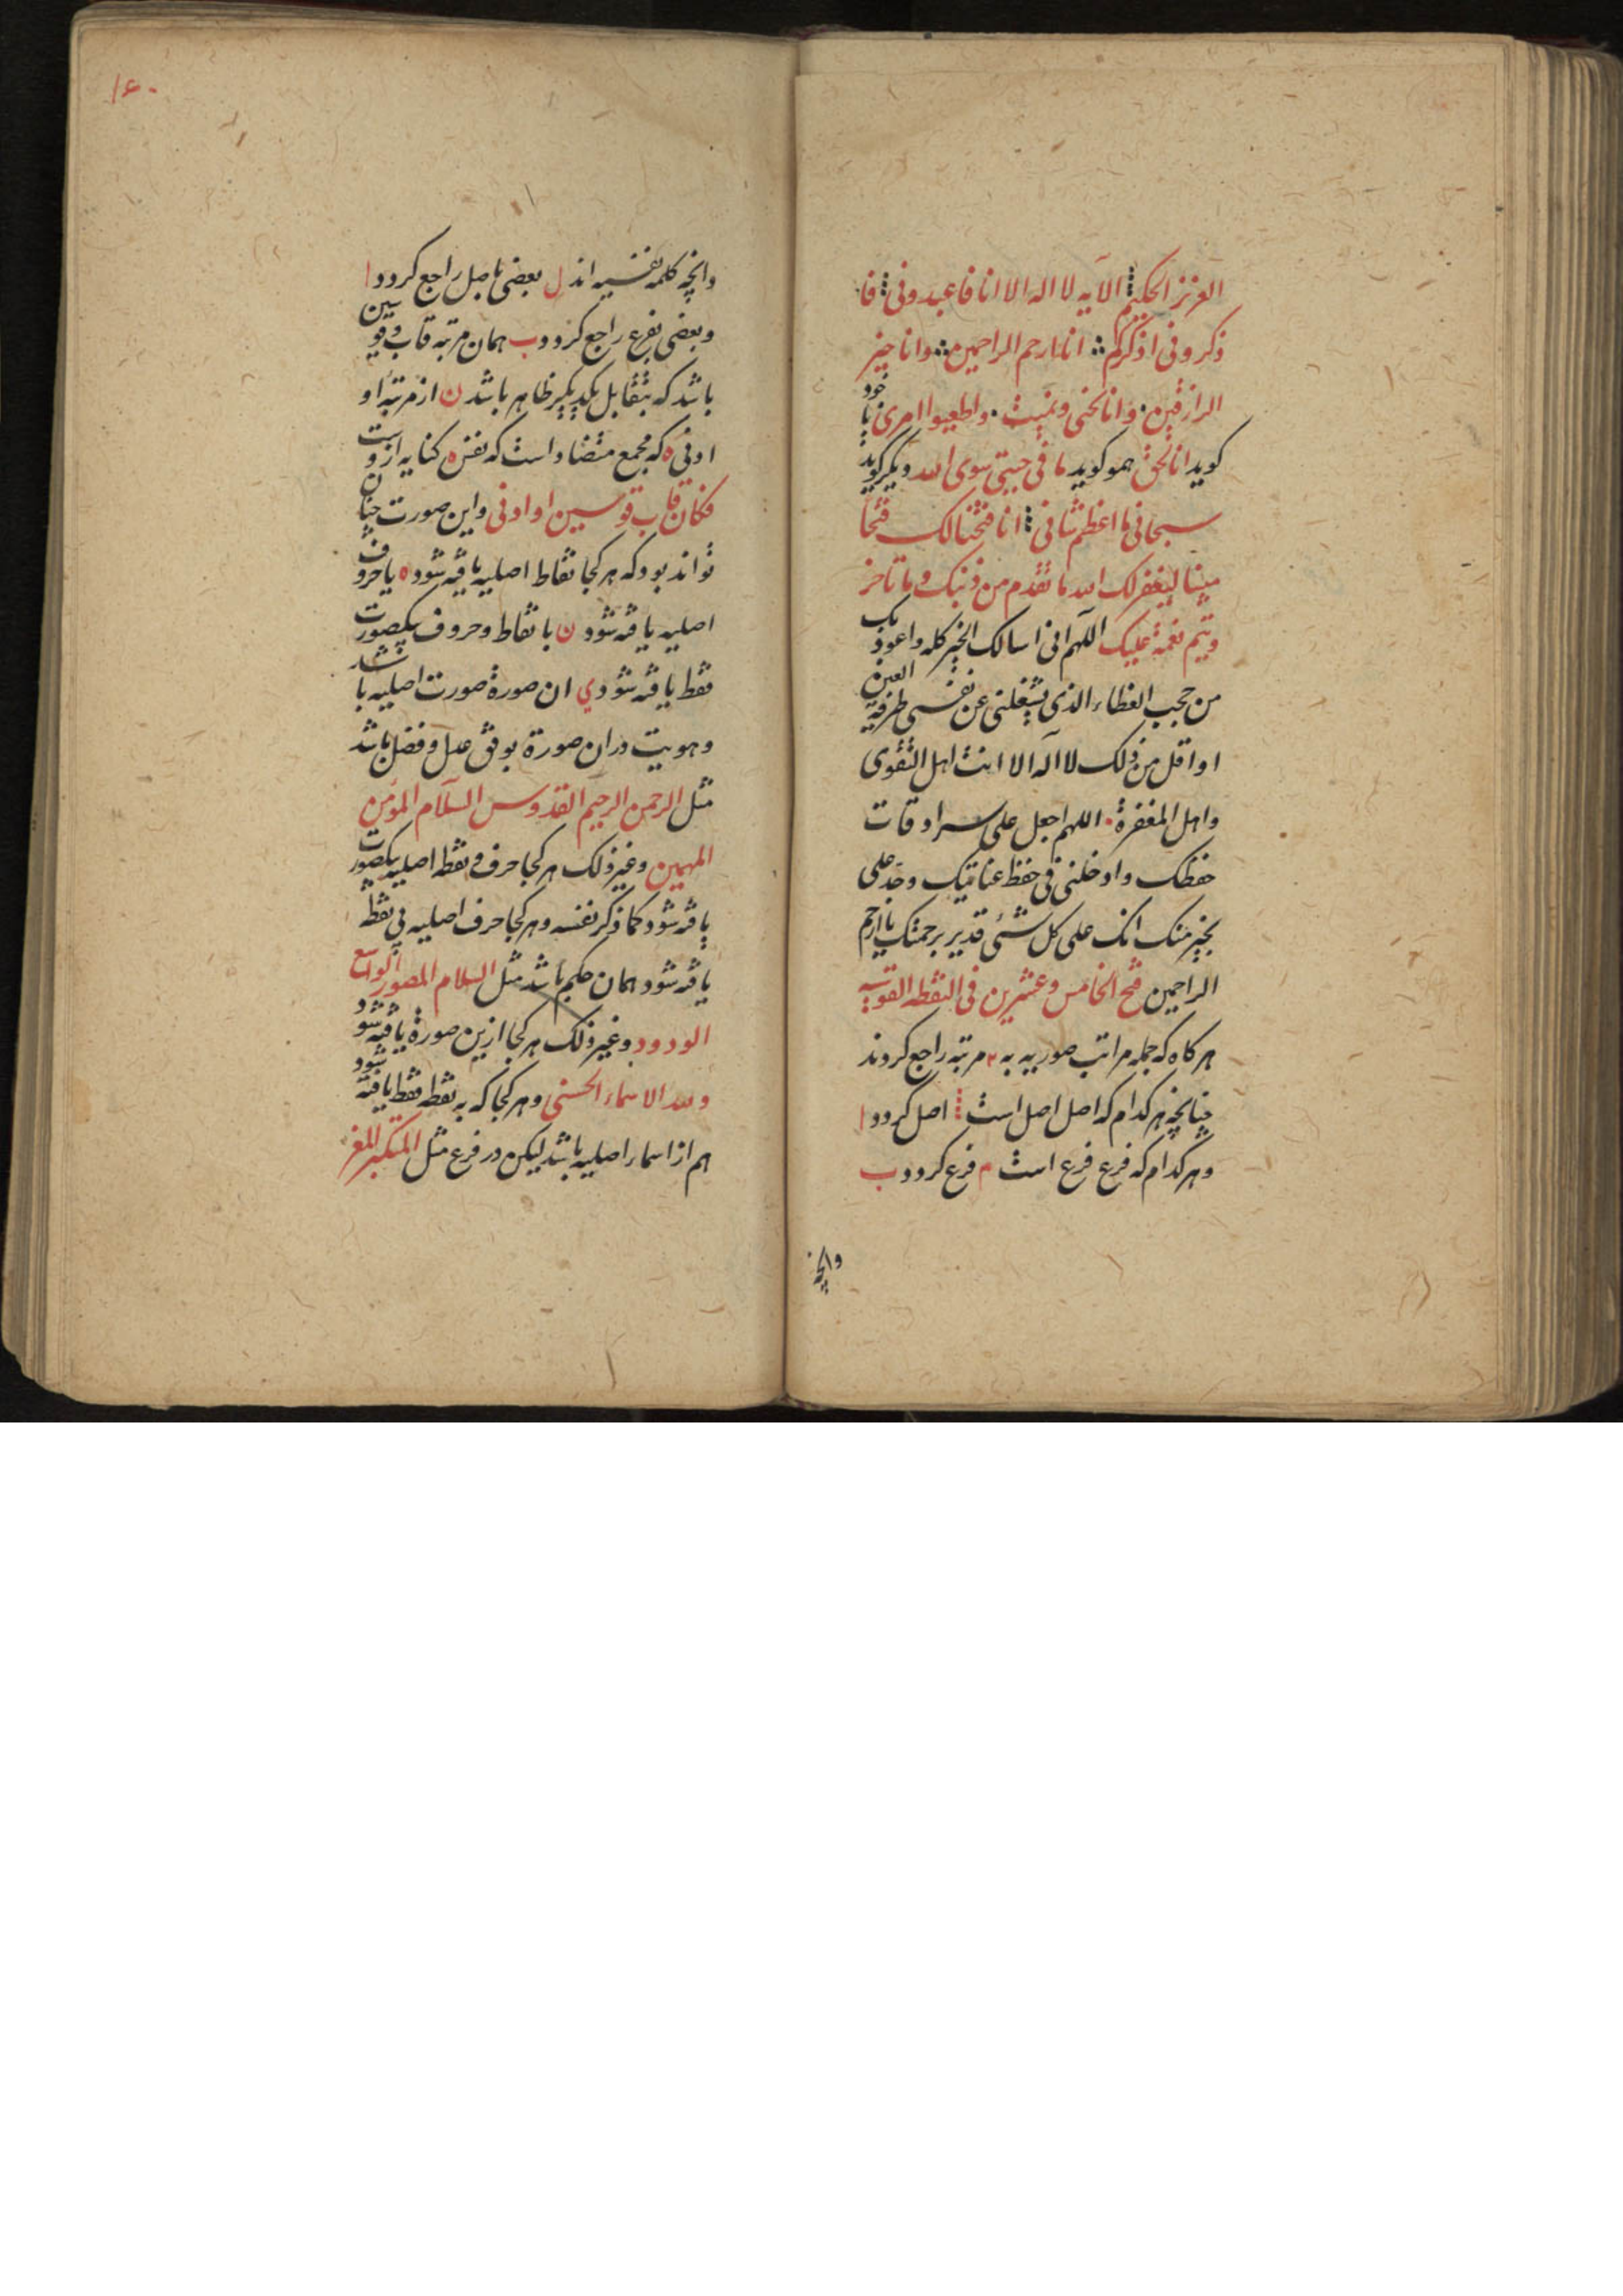 العزیز الحکیم الآیه لا اله الا انا فاعبدونی فا
ذکرونی اذکرکم انا ارحم الراحمین وانا خیر
الرازقین وانا نحی ونمیت واطیعوا امری با خود
کوید انا الحق همو کوید ما فی جبتی سوی الله دیکر کوید
سبحانی ما اعظم شانی انا فتحنا لک فتحا
مبینا لیغفر لک الله ما تقدم من ذنبک وما تاخر
ویتم نعمة علیک اللهم انی اسالک الخیر کله واعوذ بک
من حجب الغطاء الذی تشغلنی عن نفسی طرفة العین
او اقل من ذلک لا اله الا انت اهل التقوی
واهل المغفرة اللهم اجعل علی سرادقات
حفظک وادخلنی فی حفظ عنایتک وجد علی
بخیر منک انک علی کل شئ قدیر برحمتک یا ارحم
الراحمین فتح الخامس وعشرین فی النقطه
هر کاه که جمله مراتب صوریه به ۲ مرتبه راجع کردند
چنانچه هر کدام که اصل اصل است اصل کردد ا
وهر کدام که فرع فرع است م فرع کردد ب
وانچه
۱۶۰
وانچه کلمه نفسیه اند ل بعضی باصل راجع کردد ا
وبعضی بفرع راجع کردد ب همان مرتبه قاب قوسین
باشد که بتقابل یکدیکر ظاهر باشد ن از مرتبه او
ادنی ه که مجمع متضاد است که نفس ه کنایه ازوست
فکان قاب قوسین او ادنی واین صورت چنان
تواند بود که هر کجا نقاط اصلیه یافته شود ه یا حروف
اصلیه یافته شود ن با نقاط وحروف بکصورت
فقط یافته شود ی ان صورة صورت اصلیه باشد
وهویت دران صورة بوفق عدل وفضل باشد
مثل الرحمن الرحیم القدوس السلام المؤمن
المهیمن وغیر ذلک هر کجا حرف ونقطه اصلیه بکصورت
یافته شود کما ذکر نفسه وهر کجا حرف اصلیه بی نقطه
یافته شود همان حکم باشد مثل السلام المصور الواسع
الودود وغیر ذلک هر کجا ازین صورة یافته شود
ولله الاسماء الحسنی وهر کجا که به نقطه فقط یافته شود
هم از اسماء اصلیه باشد لیکن در فرع مثل المتکبر